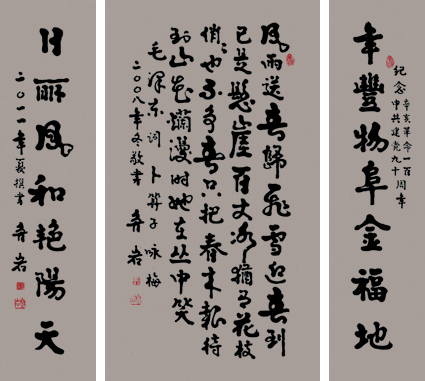 年豐物阜金福地
纪念
辛亥革命一百
中共建党九十
周年
风雨送春歸飛雪迎春到
已是懸崖百丈冰猶有花枝
俏〻也不争春只把春来報待
到山花爛漫时她在丛中笑
毛泽东词卜算子咏梅
二〇〇八年冬敬书
岩
日丽风和艳陽天
二〇一一年夏撰书
岩